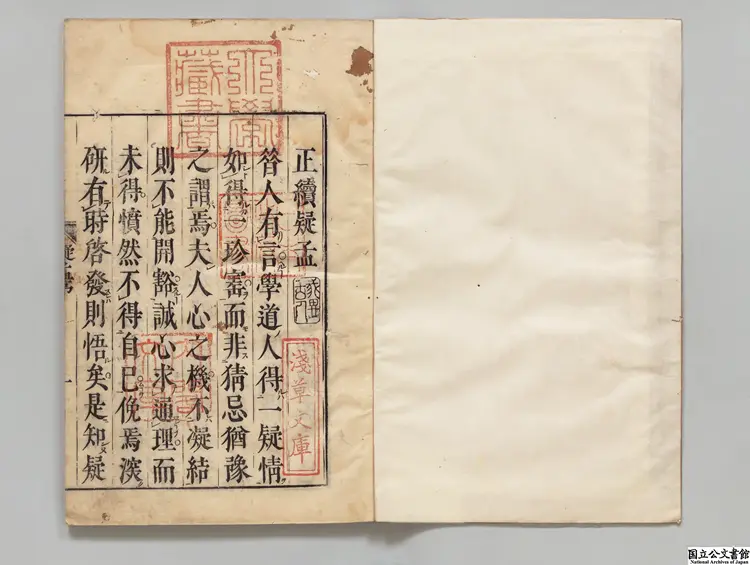 正續疑孟
昔人有言學道人得一疑情
如得珍寶而非猜忌猶豫
之謂焉夫人心之機不凝結
則不能開豁誠心求通理而
未得憤然不得自已俛焉深
研有時啓發則悟矣是知疑
淺草文庫
藏書
國立公文書館
National Archives of Japan